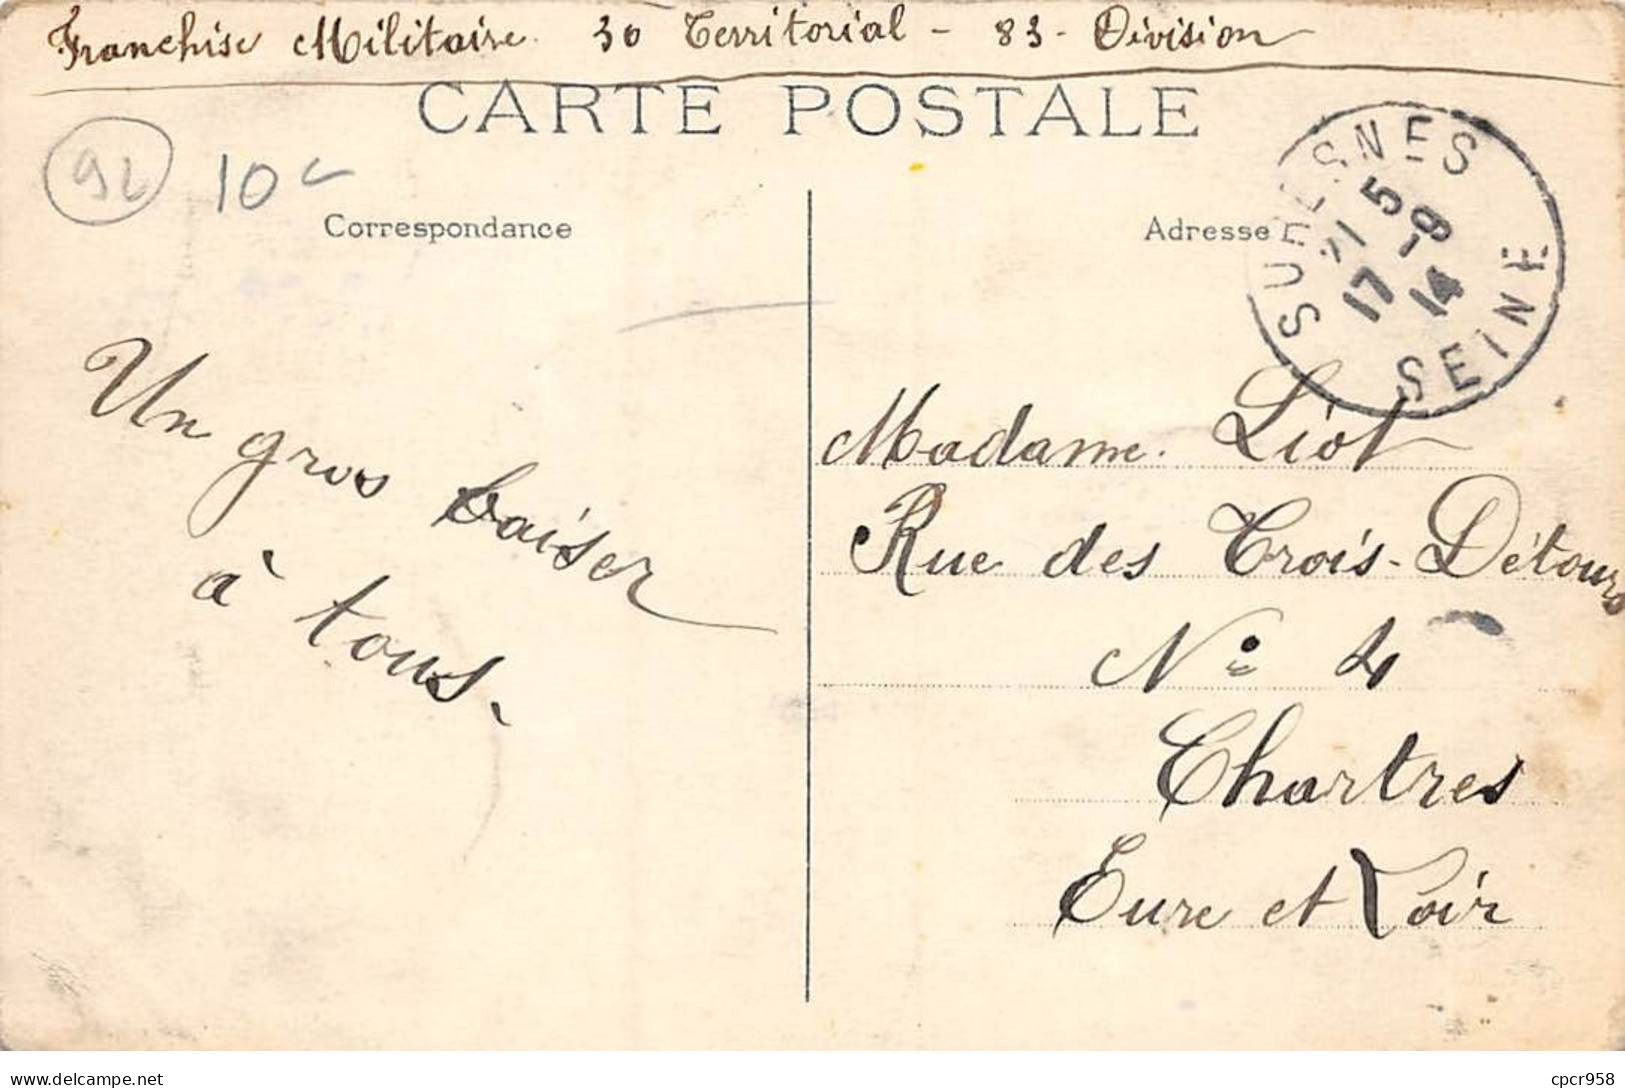 Franchise Militaire. 30 Territorial - 83 - Division
CARTE POSTALE
92
10
Correspondance
Adresse
SURESNES
5
17 -8
14
SEINE
Un gros baiser
à tous.
Madame. Liot
Rue des Trois-Détours
N° 4
Chartres
Eure et Loir
delcampe.net
cpcr958